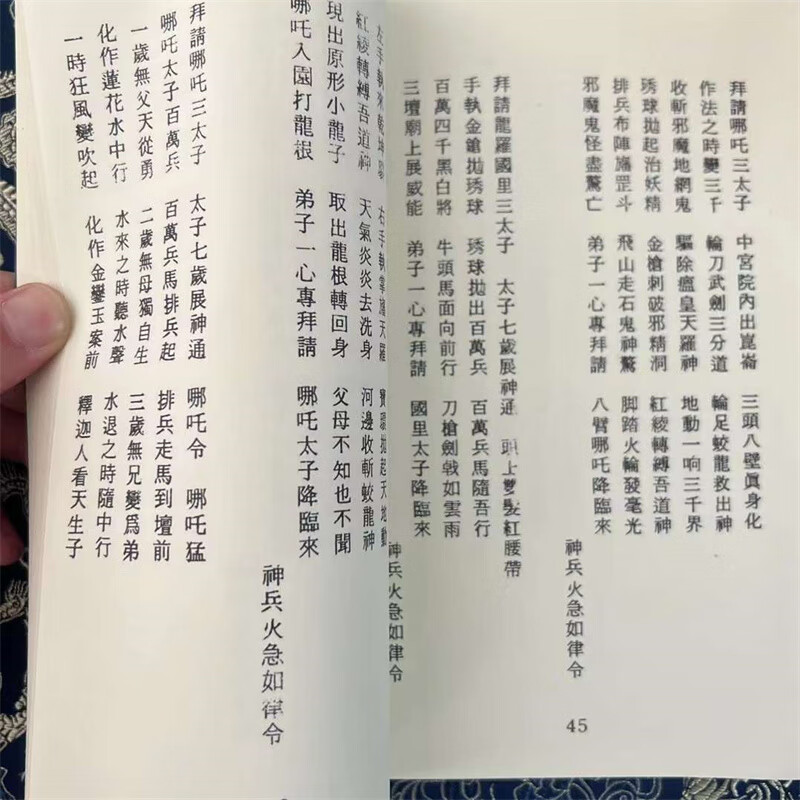 拜請哪吒三太子 中宮院內出崑崙 三頭八壁眞身化
作法之時變三千 輪刀武劍三分道 輪足蛟龍救出神
收斬邪魔地網鬼 驅除瘟皇天羅神 地動一响三千界
琇球拋起治妖精 金槍刺破邪精洞 紅綾轉縛吾道神
排兵布陣旛罡斗 飛山走石鬼神驚 脚踏火輪發毫光
邪魔鬼怪盡驚亡 弟子一心專拜請 八臂哪吒降臨來
神兵火急如律令
拜請龍羅國里三太子 太子七歲展神通 頭上雙髮紅腰帶
手執金鎗拋琇球 琇球拋出百萬兵 百萬兵馬隨吾行
百萬四千黑白將 牛頭馬面向前行 刀槍劍戟如雲雨
三壇廟上展威能 弟子一心專拜請 國里太子降臨來
神兵火急如律令
45
左手執來乾坤 右手執掌旛天羅 拋起天地動
紅綾轉縛吾道神 天氣炎炎去洗身 河邊收斬蛟龍神
現出原形小龍子 取出龍根轉回身 父母不知也不聞
哪吒入園打龍根 弟子一心專拜請 哪吒太子降臨來
神兵火急如律令
拜請哪吒三太子 太子七歲展神通 哪吒令 哪吒猛
哪吒太子百萬兵 百萬兵馬排兵起 排兵走馬到壇前
一歲無父天從勇 二歲無母獨自生 三歲無兄變爲弟
化作蓮花水中行 水來之時聽水聲 水退之時隨中行
一時狂風變吹起 化作金鑾玉案前 釋迦人看天生子